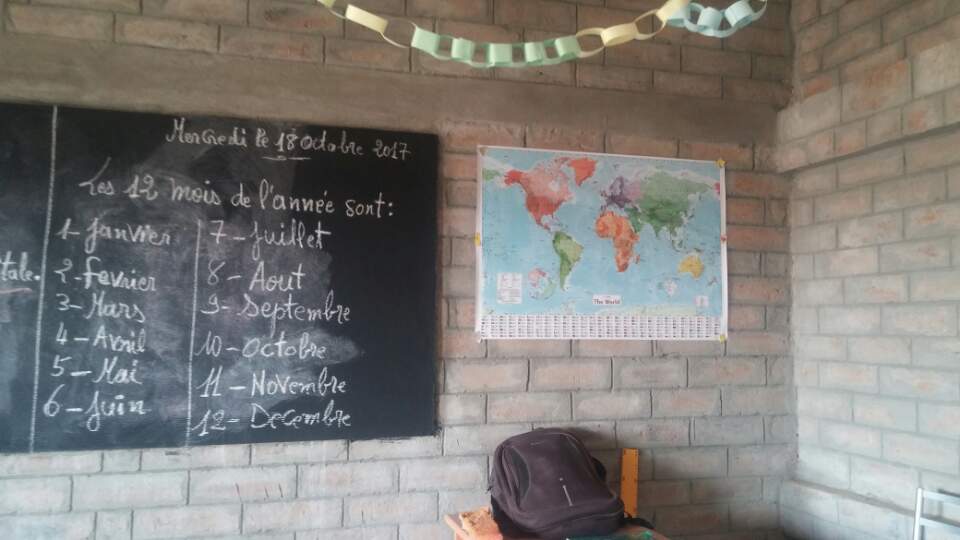 Mercredi le 18 Octobre 2017
Les 12 mois de l'année sont:
1- Janvier
2- Fevrier
3- Mars
4- Avril
5- Mai
6- Juin
7- Juillet
8- Aout
9- Septembre
10- Octobre
11- Novembre
12- Decembre
tale.
The World